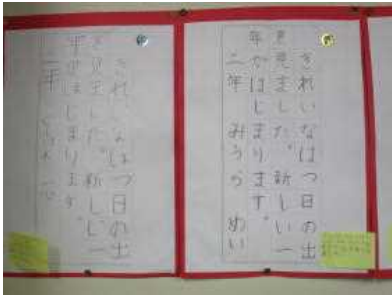 きれいなはつ日の出
を見ました。新しい一
年がはじまります。
二年 みうら めい
きれいなはつ日の出
を見ました。新しい一
年がはじまります。
二年